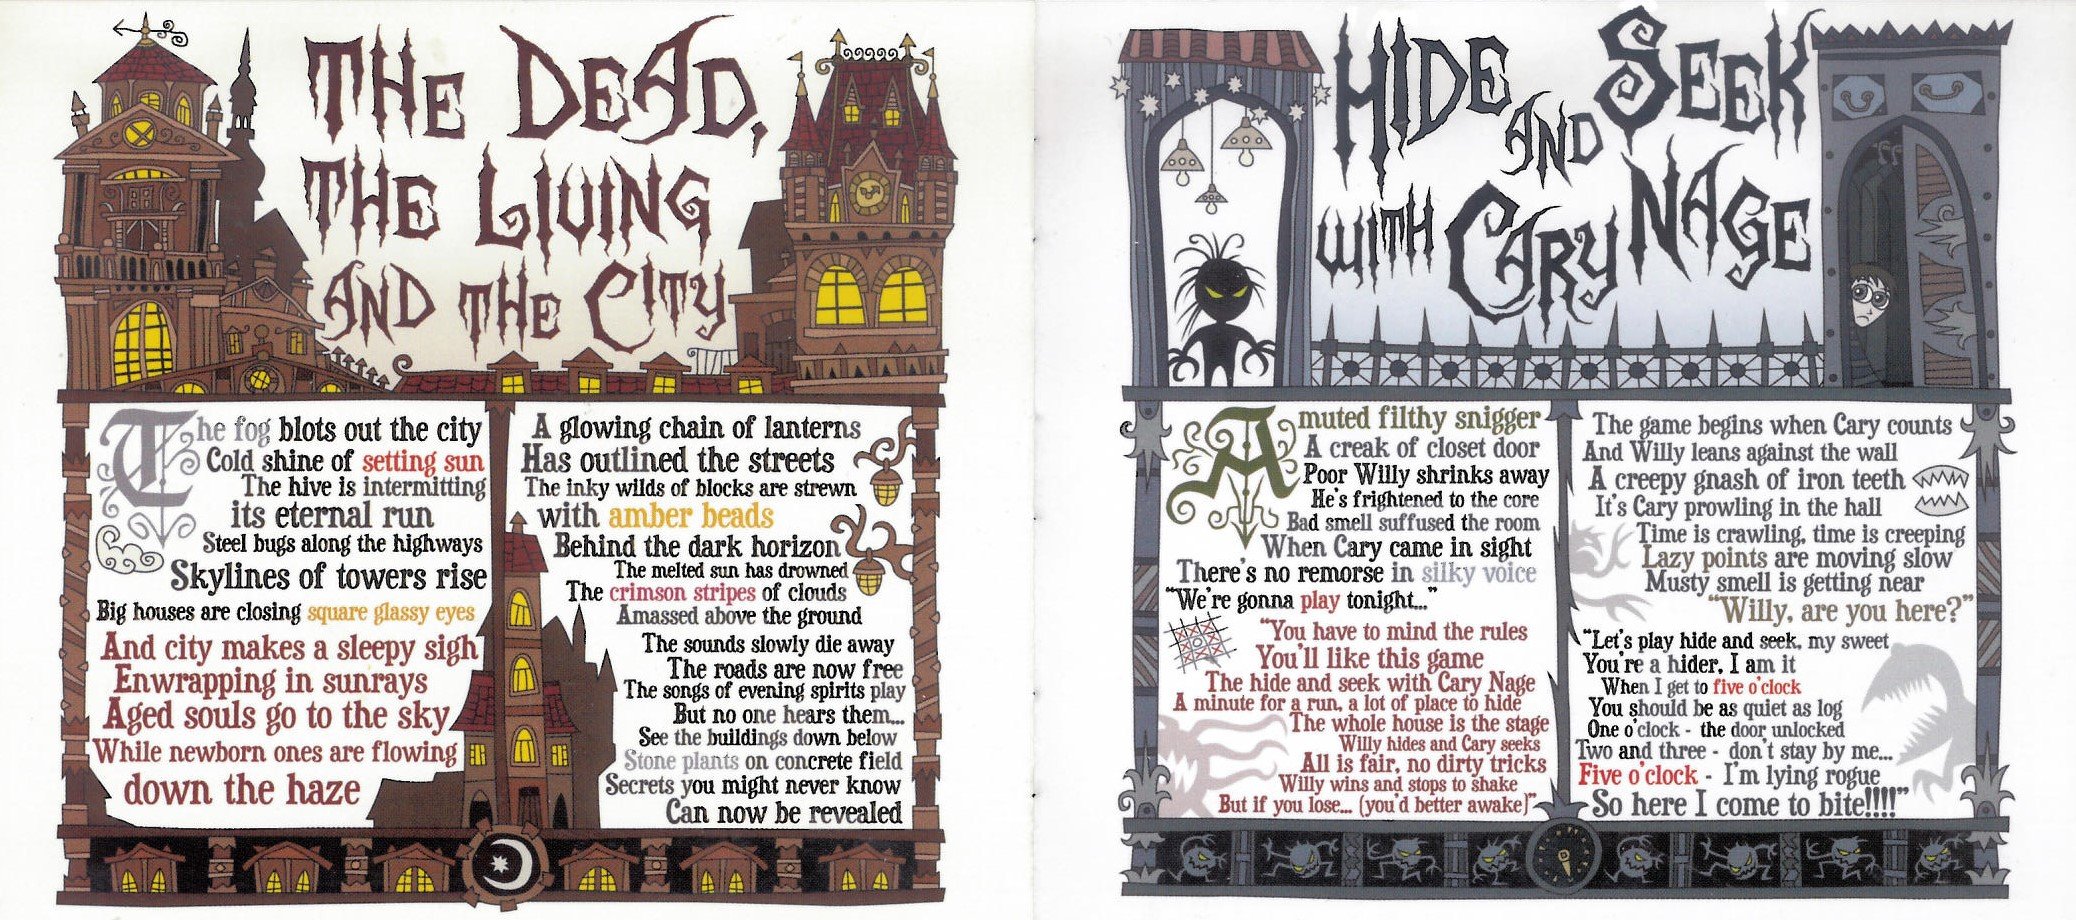 The Dead,
The Living
and the City
The fog blots out the city
Cold shine of setting sun
The hive is intermitting
its eternal run
Steel bugs along the highways
Skylines of towers rise
Big houses are closing square glassy eyes
And city makes a sleepy sigh
Enwrapping in sunrays
Aged souls go to the sky
While newborn ones are flowing
down the haze
A glowing chain of lanterns
Has outlined the streets
The inky wilds of blocks are strewn
with amber beads
Behind the dark horizon
The melted sun has drowned
The crimson stripes of clouds
Amassed above the ground
The sounds slowly die away
The roads are now free
The songs of evening spirits play
But no one hears them...
See the buildings down below
Stone plants on concrete field
Secrets you might never know
Can now be revealed
Hide and Seek
with Cary Nage
A muted filthy snigger
A creak of closet door
Poor Willy shrinks away
He's frightened to the core
Bad smell suffused the room
When Cary came in sight
There's no remorse in silky voice
"We're gonna play tonight..."
"You have to mind the rules
You'll like this game
The hide and seek with Cary Nage
A minute for a run, a lot of place to hide
The whole house is the stage
Willy hides and Cary seeks
All is fair, no dirty tricks
Willy wins and stops to shake
But if you lose... (you'd better awake)"
The game begins when Cary counts
And Willy leans against the wall
A creepy gnash of iron teeth
It's Cary prowling in the hall
Time is crawling, time is creeping
Lazy points are moving slow
Musty smell is getting near
"Willy, are you here?"
"Let's play hide and seek, my sweet
You're a hider, I am it
When I get to five o'clock
You should be as quiet as log
One o'clock - the door unlocked
Two and three - don't stay by me...
Five o'clock - I'm lying rogue
So here I come to bite!!!!"